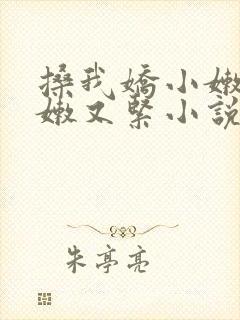 搡我嬌小嫩
嫩又緊小說
朱亭亮